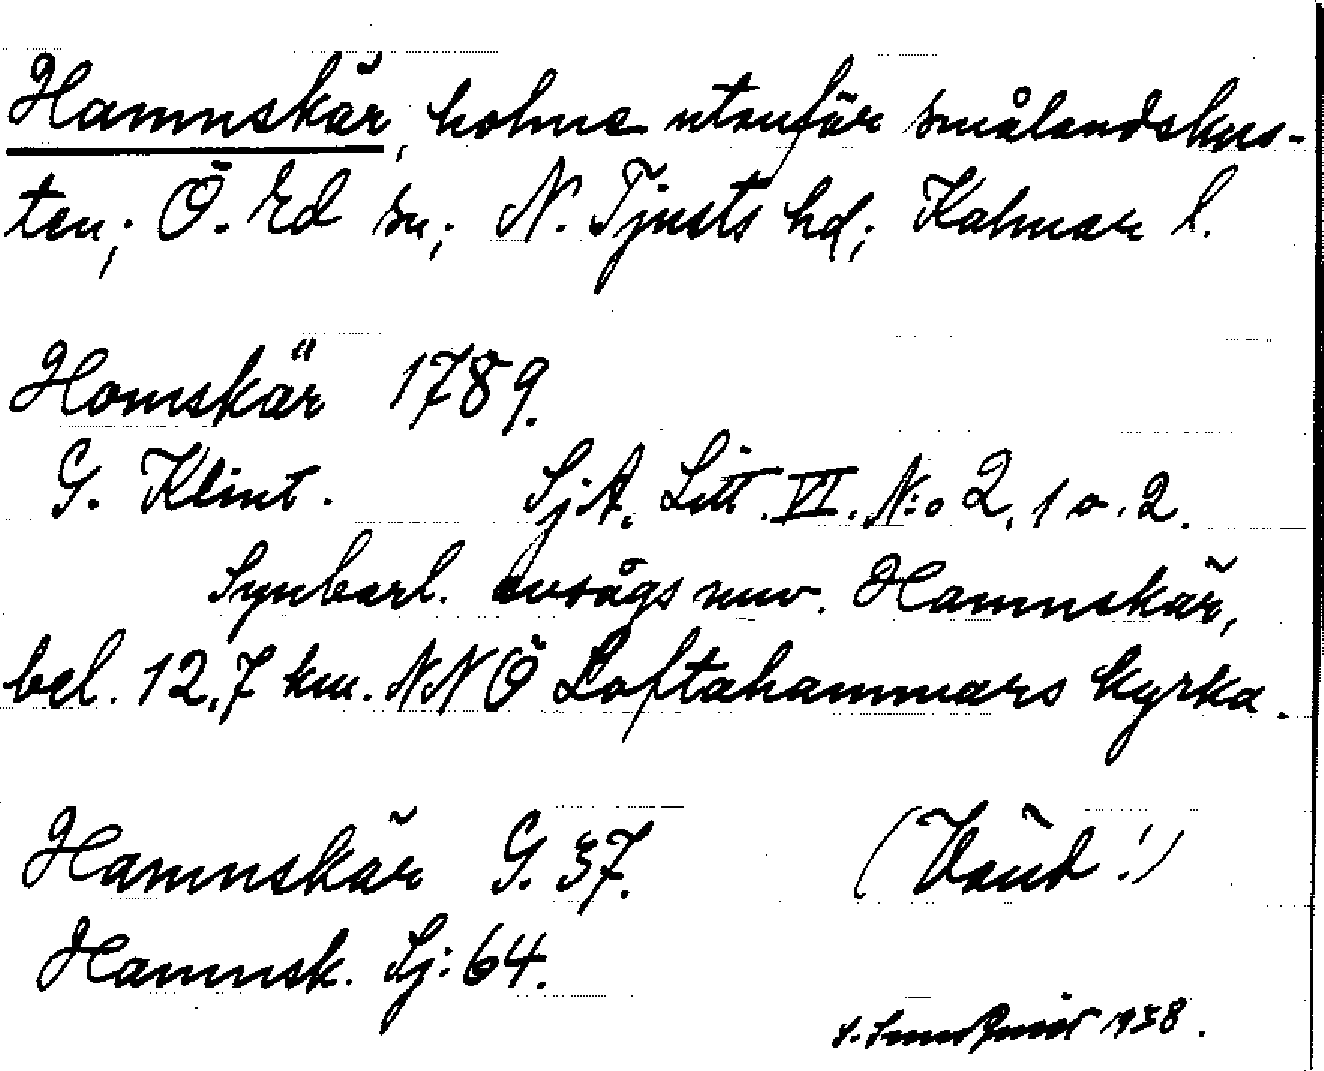 Hamnskär, holme utanför smålandskus-
ten; Ö. Ed sn; N. Tjusts hd; Kalmar l.
Homskär 1789.
G. Klint. SjA. Litt. VI. N:o 2, 1 o. 2.
Synbarl. avsågs nuv. Hamnskär,
bel. 12,7 km. NNÖ Loftahammars kyrka.
Hamnskär G. 37. (Vänd!)
Hamnsk. Sj: 64.
1938.